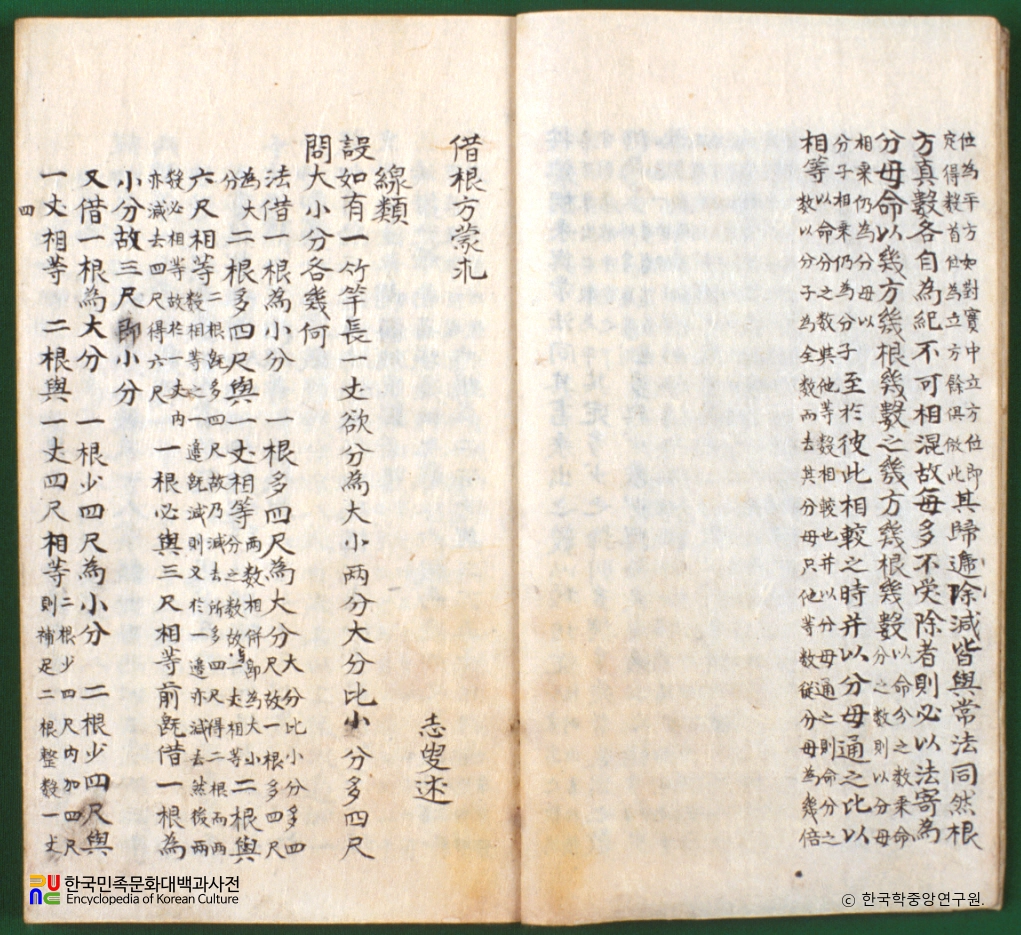 位為平方如對實中立方位即
定得数首位為立方餘俱倣此
其歸遞除減皆與常法同然根
方真數各自為紀不可相混故每多不受除者則必以法寄為
分母命以幾方幾根幾數之幾方幾根幾數
以命分之數乘命
分之數則以分母
相乘仍為分母以
分子相乘仍為分子
至於彼此相較之時并以分母通之比以
相等
数以命分之数與他等數相較也并以分母通之則命分之
数以分子為全數而去其分母只他等數從分母為幾倍
借根方蒙求
志叟述
線類
設如有一竹竿長一丈欲分為大小兩分大分比小分多四尺
問大小分各幾何
法借一根為小分 一根多四尺為大分
大分比小分多四
尺故一根多四尺
為大
分
二根多四尺與一丈相等
兩数相併即為大小
分之数故與一丈相等
二根與
六尺相等
二根既多四尺故乃減去所多四尺得二根而兩
數相等之一邊既減則又於一邊亦減去然後兩
數必相等故於一丈内
亦減去四尺得六尺
一根必與三尺相等前既借一根為
小分故三尺即小分
又借一根為大分 一根少四尺為小分 二根少四尺與
一丈相等 二根與一丈四尺相等
二根少四尺内加四尺
則補足二根整數一丈
四
한국민족문화대백과사전
Encyclopedia of Korean Culture
© 한국학중앙연구원.